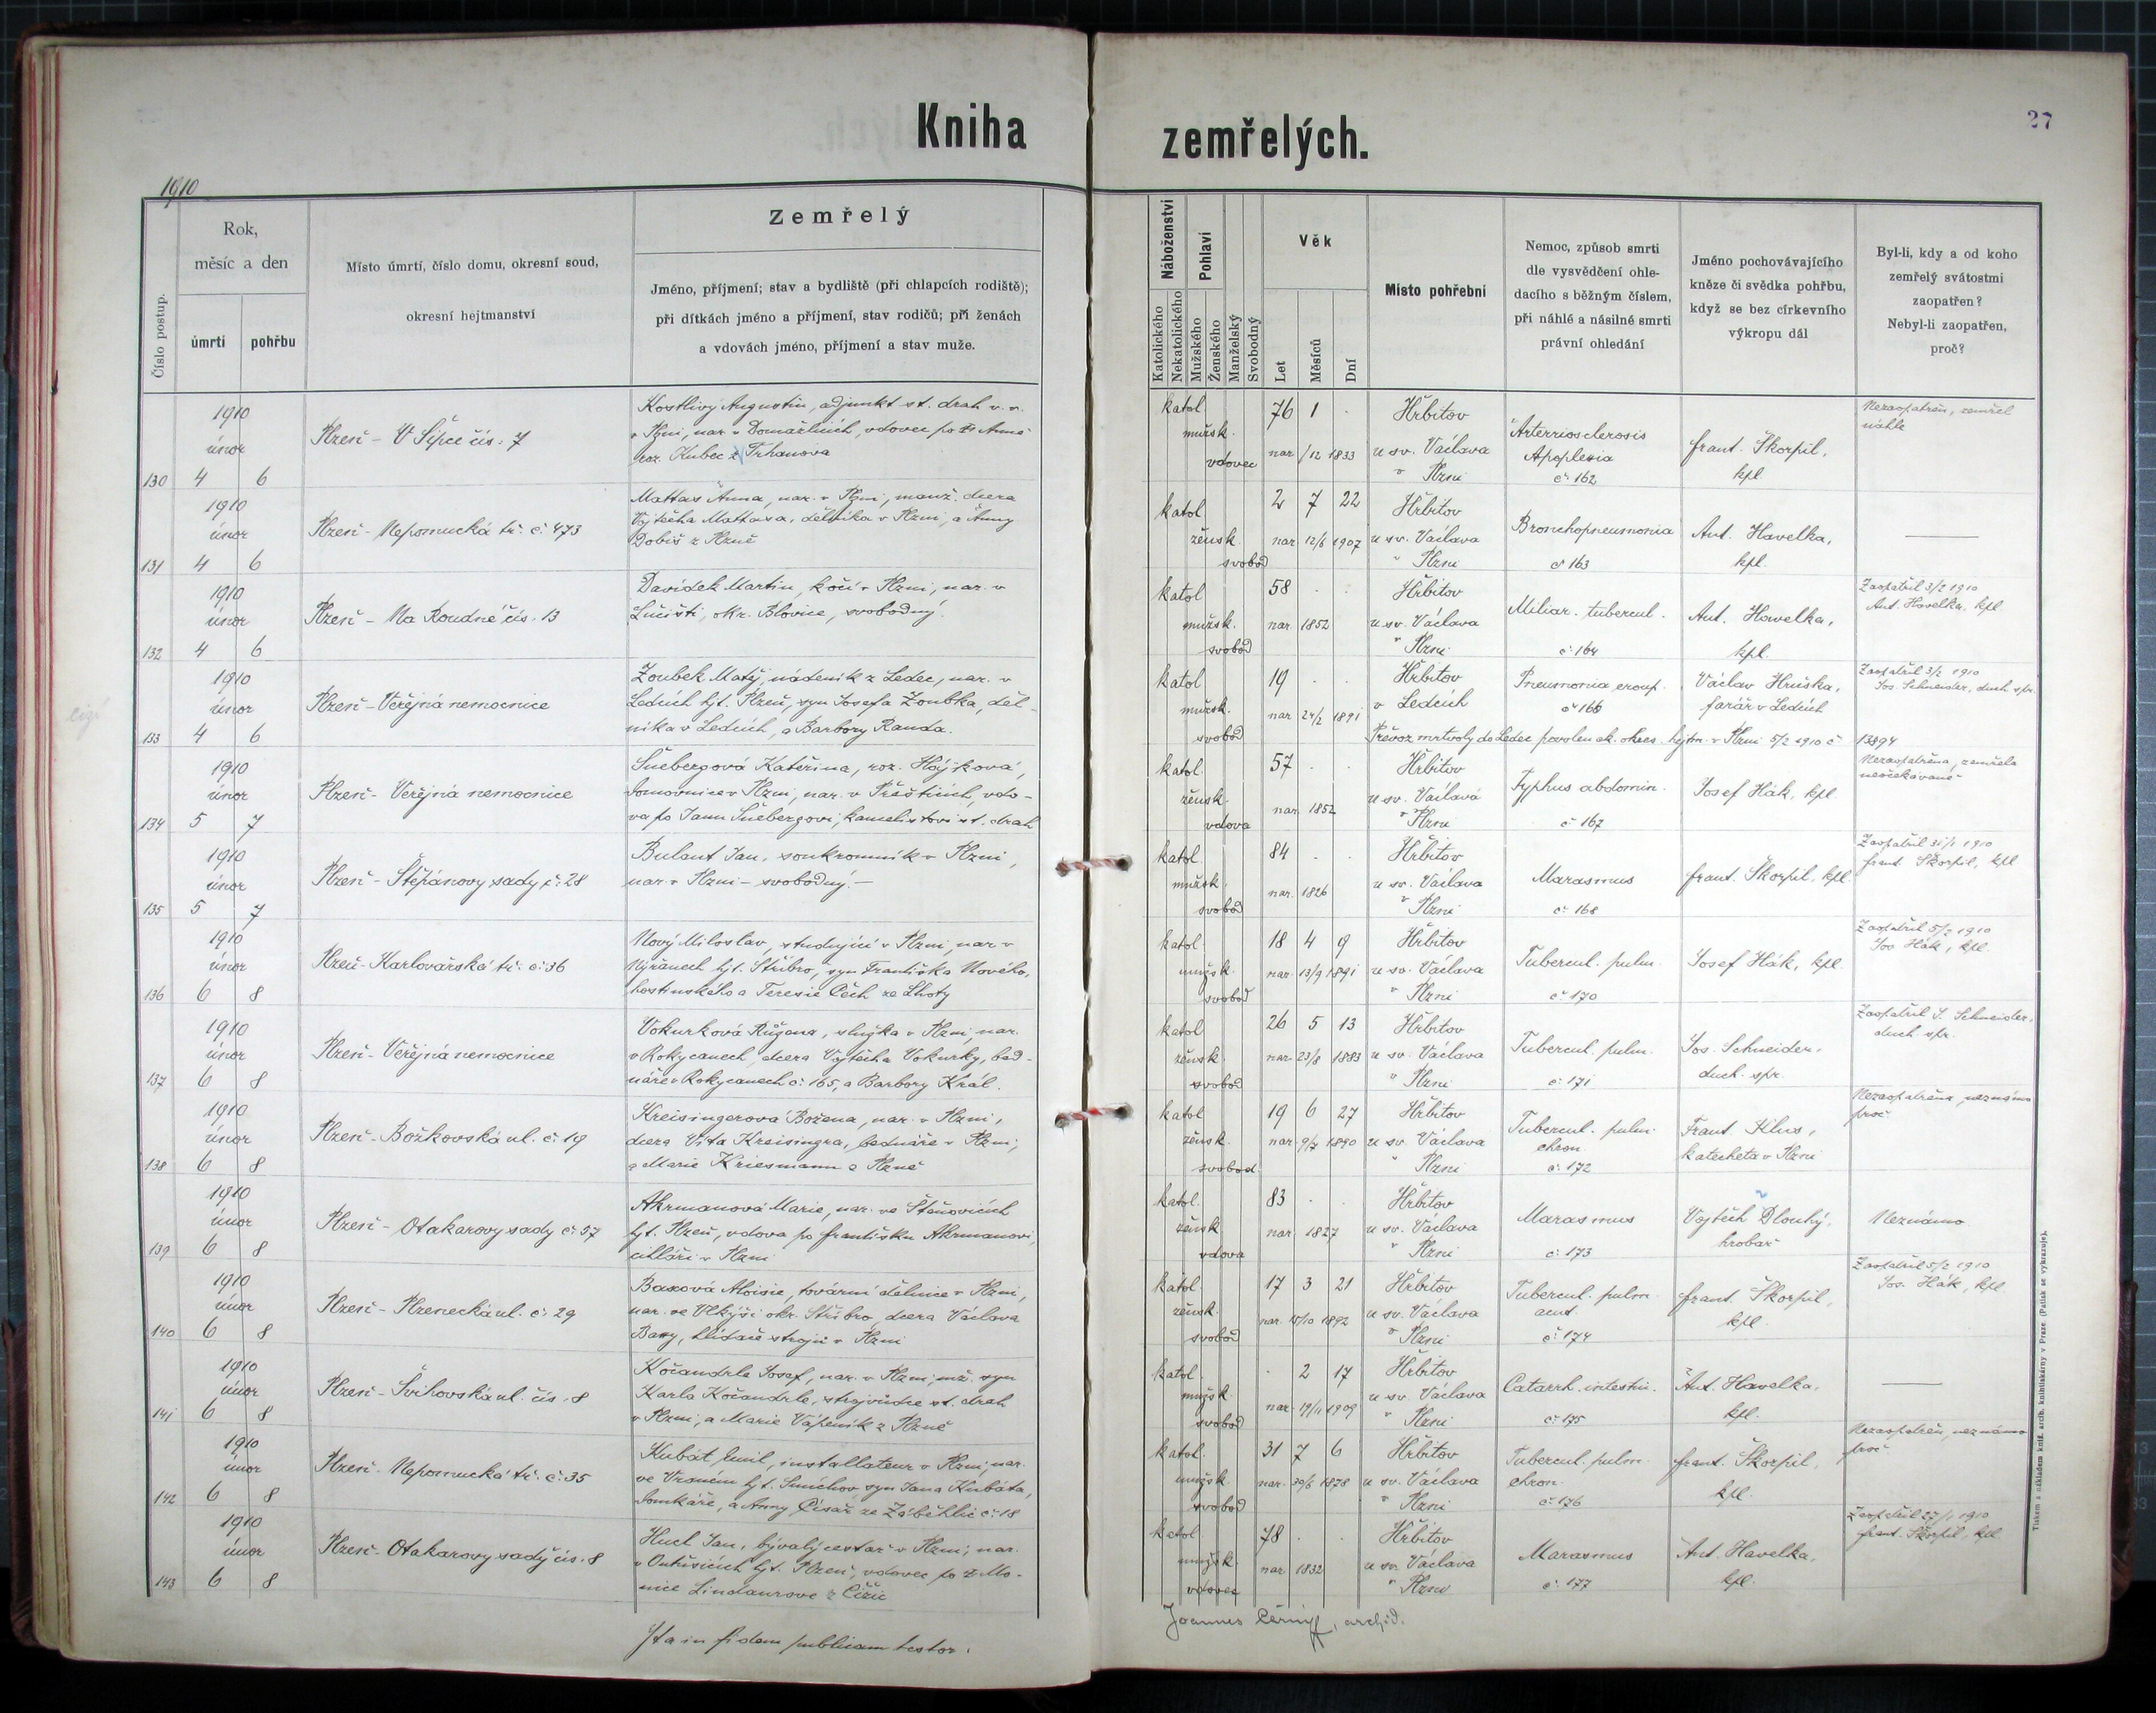 Kniha zemřelých.
27
1910
Číslo postup.
Rok,
měsíc a den
úmrtí
pohřbu
Místo úmrtí, číslo domu, okresní soud,
okresní hejtmanství
Zemřelý
Jméno, příjmení; stav a bydliště (při chlapcích rodiště);
při dítkách jméno a příjmení, stav rodičů; při ženách
a vdovách jméno, příjmení a stav muže.
Náboženství
Katolického
Nekatolického
Pohlaví
Mužského
Ženského
Manželský
Svobodný
Věk
Let
Měsíců
Dní
Místo pohřební
Nemoc, způsob smrti
dle vysvědčení ohle-
dacího s běžným číslem,
při náhlé a násilné smrti
právní ohledání
Jméno pochovávajícího
kněze či svědka pohřbu,
když se bez církevního
výkropu dál
Byl-li, kdy a od koho
zemřelý svátostmi
zaopatřen?
Nebyl-li zaopatřen,
proč?
130
1910
únor
4 6
Plzeň - V Šipce čís. 7
Kostlivý Augustin, adjunkt st. drah v. v.
v Plzni, nar. v Domažlicích, vdovec po Anně
roz. Kubec z Trhanova
katol. mužsk. vdovec
76 1 .
nar. /12 1833
Hřbitov
u sv. Václava
v Plzni
Arterriosclerosis
Apoplexia
č. 162
Frant. Škorpil,
kpl.
Nezaopatřen, zemřel
náhle
131
1910
únor
4 6
Plzeň - Nepomucká tř. č. 473
Mattas Anna, nar. v Plzni, manž. dcera
Vojtěcha Mattasa, dělníka v Plzni, a Anny
Dobiš z Plzně
katol. žensk. svobod
2 7 22
nar. 12/6 1907
Hřbitov
u sv. Václava
v Plzni
Bronchopneumonia
č. 163
Ant. Havelka,
kpl.
132
1910
únor
4 6
Plzeň - Na Roudné čís. 13
Davídek Martin, kočí v Plzni, nar. v
Lučišti, okr. Blovice, svobodný.
katol. mužsk. svobod
58 . .
nar. 1852
Hřbitov
u sv. Václava
v Plzni
Miliar. tubercul.
č. 164
Ant. Havelka,
kpl.
Zaopatřil 3/2 1910
Ant. Havelka, kpl.
cizí
133
1910
únor
4 6
Plzeň - Veřejná nemocnice
Zoubek Matěj, nádeník z Ledec, nar. v
Ledcích hjt. Plzeň, syn Josefa Zoubka, děl-
níka v Ledcích, a Barbory Randa.
katol. mužsk. svobod
19 . .
nar. 24/2 1891
Hřbitov
v Ledcích
Pneumonia croup.
č. 166
Václav Hruška,
farář v Ledcích
Zaopatřil 3/2 1910
Jos. Schneider, duch. spr.
Převoz mrtvoly do Ledec povolen ck. okres. hejtm. v Plzni 5/2 1910 č. 13894
134
1910
únor
5 7
Plzeň - Veřejná nemocnice
Šnebergová Kateřina, roz. Hájková,
domovnice v Plzni, nar. v Přešticích, vdo-
va po Janu Šnebergovi, kancelistovi st. drah
katol. žensk. vdova
57 . .
nar. 1852
Hřbitov
u sv. Václava
v Plzni
Typhus abdomin.
č. 167
Josef Hák, kpl.
Nezaopatřena, zemřela
neočekávaně
135
1910
únor
5 7
Plzeň - Štěpánovy sady č. 28
Bulant Jan, soukromník v Plzni,
nar. v Plzni - svobodný. -
katol. mužsk. svobod
84 . .
nar. 1826
Hřbitov
u sv. Václava
v Plzni
Marasmus
č. 168
Frant. Škorpil, kpl.
Zaopatřil 31/1 1910
Frant. Škorpil, kpl.
136
1910
únor
6 8
Plzeň - Karlovarská tř. č. 36
Nový Miloslav, studující v Plzni, nar. v
Nýřanech hjt. Stříbro, syn Františka Nového,
hostinského a Teresie Čech ze Lhoty
katol. mužsk. svobod
18 4 9
nar. 13/9 1891
Hřbitov
u sv. Václava
v Plzni
Tubercul. pulm.
č. 170
Josef Hák, kpl.
Zaopatřil 5/2 1910
Jos. Hák, kpl.
137
1910
únor
6 8
Plzeň - Veřejná nemocnice
Vokurková Růžena, služka v Plzni, nar.
v Rokycanech, dcera Vojtěcha Vokurky, bed-
náře v Rokycanech č. 165, a Barbory Král.
katol. žensk. svobod
26 5 13
nar. 23/8 1883
Hřbitov
u sv. Václava
v Plzni
Tubercul. pulm.
č. 171
Jos. Schneider,
duch. spr.
Zaopatřil J. Schneider,
duch. spr.
138
1910
únor
6 8
Plzeň - Božkovská ul. č. 19
Kreisingerová Božena, nar. v Plzni,
dcera Víta Kreisingra, bednáře v Plzni,
a Marie Kriesmann z Plzně
katol. žensk. svobod
19 6 27
nar. 9/7 1890
Hřbitov
u sv. Václava
v Plzni
Tubercul. pulm.
chron.
č. 172
Frant. Klus,
katecheta v Plzni
Nezaopatřena, neznámo
proč
139
1910
únor
6 8
Plzeň - Otakarovy sady č. 57
Akrmanová Marie, nar. ve Štěnovicích
hjt. Plzeň, vdova po Františku Akrmanovi,
cihláři v Plzni
katol. žensk. vdova
83 . .
nar. 1827
Hřbitov
u sv. Václava
v Plzni
Marasmus
č. 173
Vojtěch Dlouhý,
hrobař
Neznámo
140
1910
únor
6 8
Plzeň - Plzenecká ul. č. 29
Baxová Aloisie, tovární dělnice v Plzni,
nar. ve Vlkýši okr. Stříbro, dcera Václava
Baxy, hlídače strojů v Plzni
katol. žensk. svobod
17 3 21
nar. 15/10 1892
Hřbitov
u sv. Václava
v Plzni
Tubercul. pulm.
acut.
č. 174
Frant. Škorpil,
kpl.
Zaopatřil 5/2 1910
Jos. Hák, kpl.
141
1910
únor
6 8
Plzeň - Švihovská ul. čís. 8
Kočandrle Josef, nar. v Plzni, mž. syn
Karla Kočandrle, strojvůdce st. drah
v Plzni, a Marie Vápeník z Plzně
katol. mužsk. svobod
. 2 17
nar. 19/11 1909
Hřbitov
u sv. Václava
v Plzni
Catarrh. intestin.
č. 175
Ant. Havelka,
kpl.
142
1910
únor
6 8
Plzeň - Nepomucká tř. č. 35
Kubát Emil, installateur v Plzni, nar.
ve Vraném hjt. Smíchov syn Jana Kubáta,
domkáře, a Anny Císař ze Záběhlic č. 18
katol. mužsk. svobod
31 7 6
nar. 30/6 1878
Hřbitov
u sv. Václava
v Plzni
Tubercul. pulm.
chron.
č. 176
Frant. Škorpil,
kpl.
Nezaopatřen, neznámo
proč
143
1910
únor
6 8
Plzeň - Otakarovy sady čís. 8
Huck Jan, bývalý cestář v Plzni, nar.
v hjt. Plzeň, vdovec po Mo-
nice Lindaurove z Čižic
katol. mužsk. vdovec
78 . .
nar. 1832
Hřbitov
u sv. Václava
v Plzni
Marasmus
č. 177
Ant. Havelka,
kpl.
Zaopatřil 27/1 1910
Frant. Škorpil, kpl.
Ita in fidem publicam testor.
Joannes Černý, archid.
Tiskem a nákladem kníž. arcib. knihtiskárny v Praze. (Patisk se vykazuje).